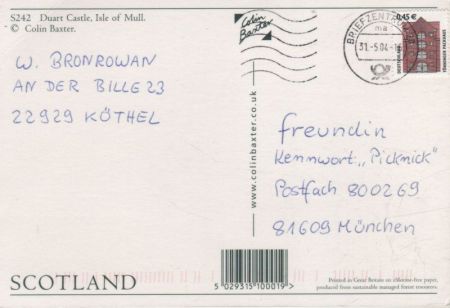 S242 Duart Castle, Isle of Mull.
© Colin Baxter.
Colin
Baxter
W. BRONROWAN
AN DER BILLE 23
22929 KÖTHEL
BRIEFZENTRUM
ma
31.-5.04-16
0,45 €
DEUTSCHLAND
TÖNNINGER PACKHAUS
www.colinbaxter.co.uk
freundin
Kennwort: „Picknick"
Postfach 800269
81609 München
SCOTLAND
5 029315 100019 >
Printed in Great Britain on chlorine-free paper,
produced from sustainable managed forest resources.